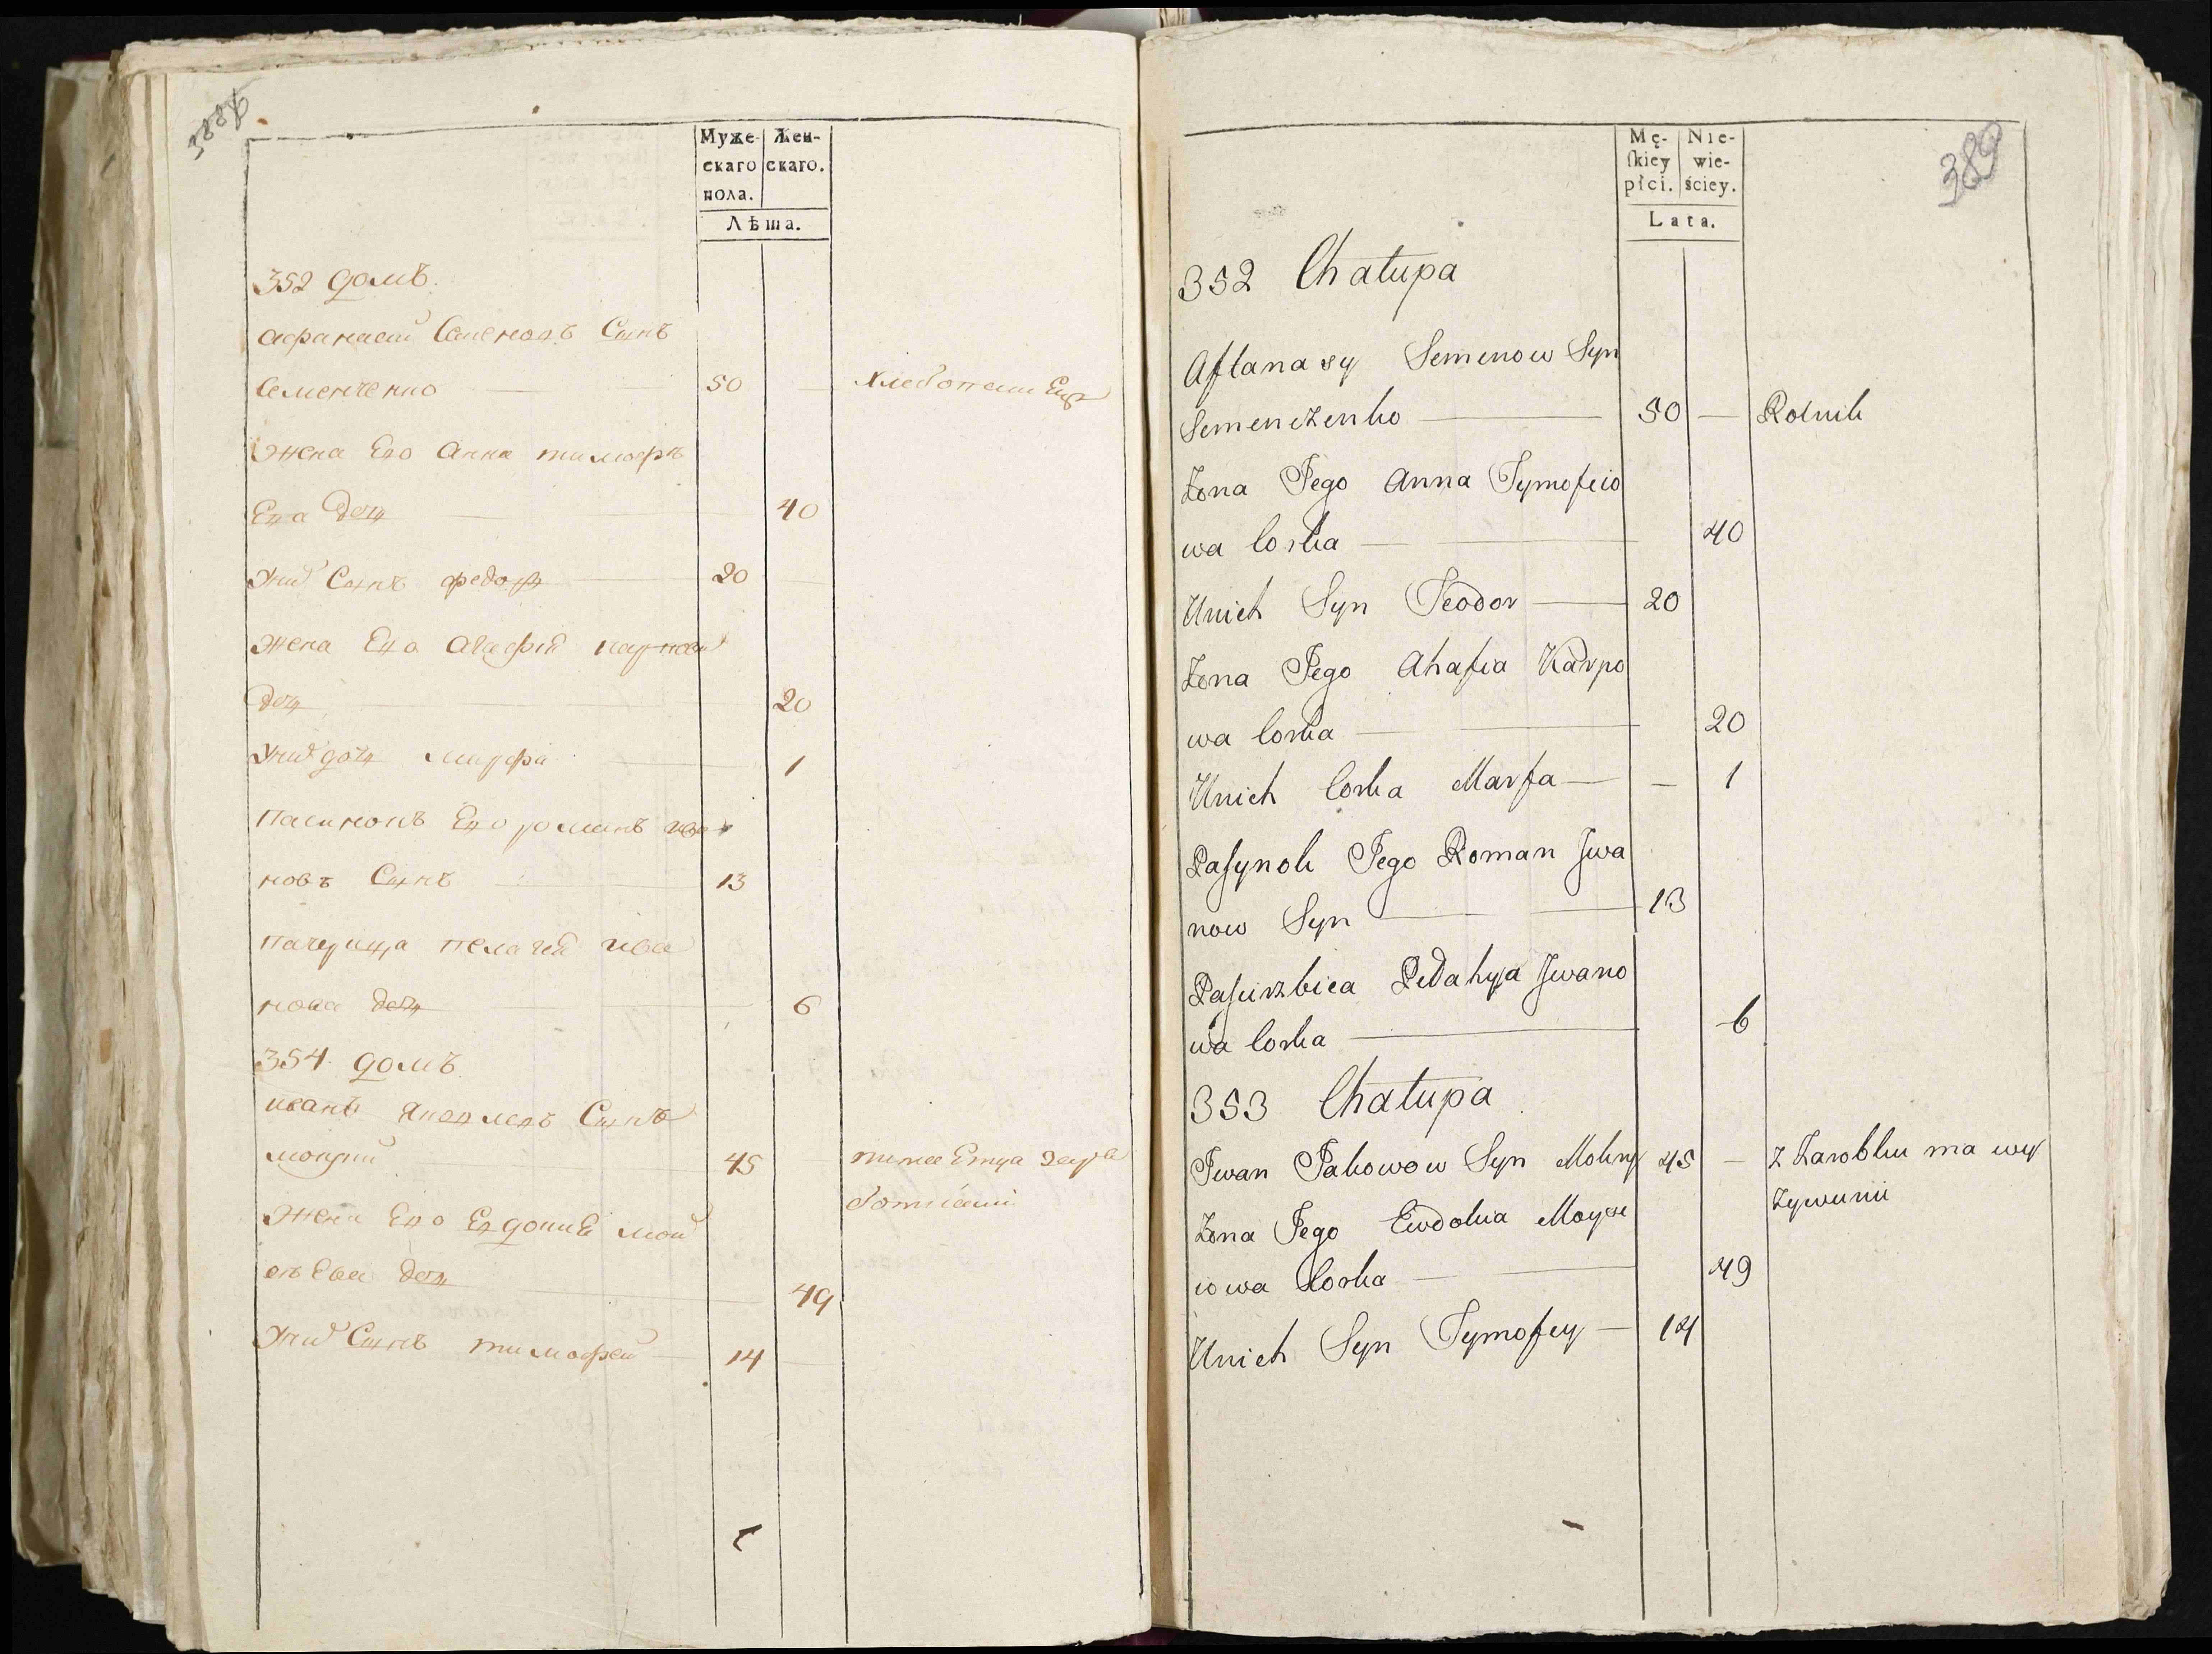 388
Муже- Жен-
скаго скаго.
пола.
Лѣта.
352 домъ.
афанасий Семеновъ Сынъ
Семенченко — 50 — Хлебопашецъ
Жена Его Анна тимофѣ
Ева дочь — 40
У них Сынъ федоръ — 20
Жена Его Агафия карпова
дочь — 20
У них дочь марфа — 1
пасинокъ Его романъ ива
новъ Сынъ — 13
падчерица пелагея ива
нова дочь — 6
354 домъ
иванъ Яковлевъ Сынъ
мокрий 45
Жена Его Евдокия мой
сѣева дочь 49
У них Сынъ тимофей — 14
389
Mę- Nie-
ſkiey wie-
płci. ściey.
Lata.
352 Chałupa
Aftanasy Semenow Syn
Semenczenko — 50 — Rolnik
Zona Jego Anna Tymofeio
wa Corka — 40
Unich Syn Teodor — 20
Zona Jego Ahafia Karpo
wa Corka — 20
Unich Corka Marfa — — 1
Pasynok Jego Roman Iwa
now Syn — 13
Pasierzbica Pelahya Iwano
wa Corka — 6
353 Chałupa
Iwan Jakowow Syn Mokry 45 — z Zarobku ma wy
żywienie
Zona Jego Ewdokia Moyse
iowa Corka — 49
Unich Syn Tymofey — 14